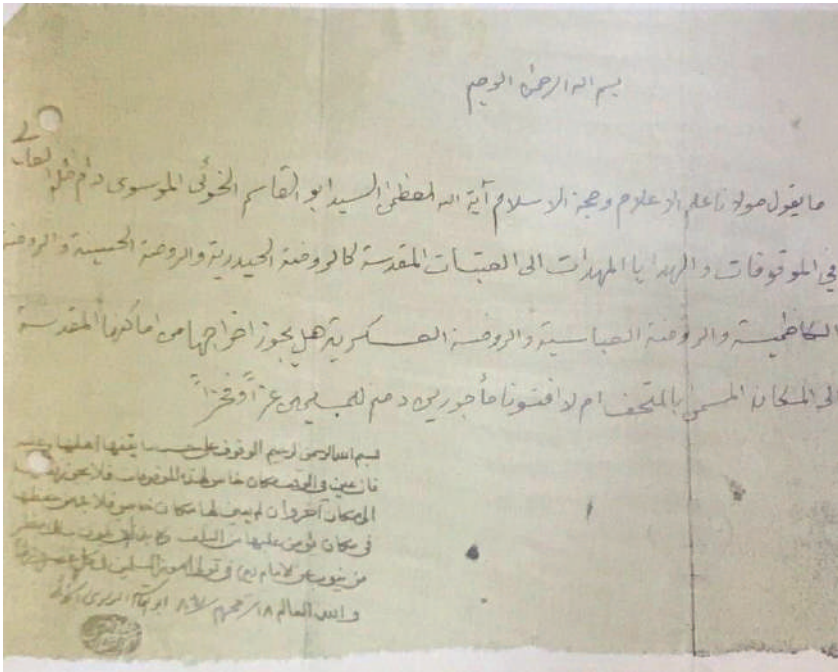 بسم الله الرحمن الرحيم
ما يقول مولانا علم الاعلام وحجة الاسلام آية الله العظمى السيد ابو القاسم الخوئي الموسوي دام ظله العالي
في الموقوفات والهدايا المهدات الى العتبات المقدسة كالروضة الحيدرية والروضة الحسينية والروضة
الكاظمية والروضة العباسية والروضة العسكرية هل يجوز اخراجها من اماكنها المقدسة
الى المكان المسمى بالمتحف ام لا افتونا مأجورين دمتم للمسلمين عزاً وفخراً
بسم الله الرحمن الرحيم الوقوف على حسب ما يقفها اهلها
فان عين في الوقف مكان خاص لهذه الموقوفات فلا يجوز نقلها
الى مكان آخر وان لم يعين لها مكان خاص فلا بأس بحفظها
في مكان يؤمن عليها من التلف
والله العالم ١٨ محرم